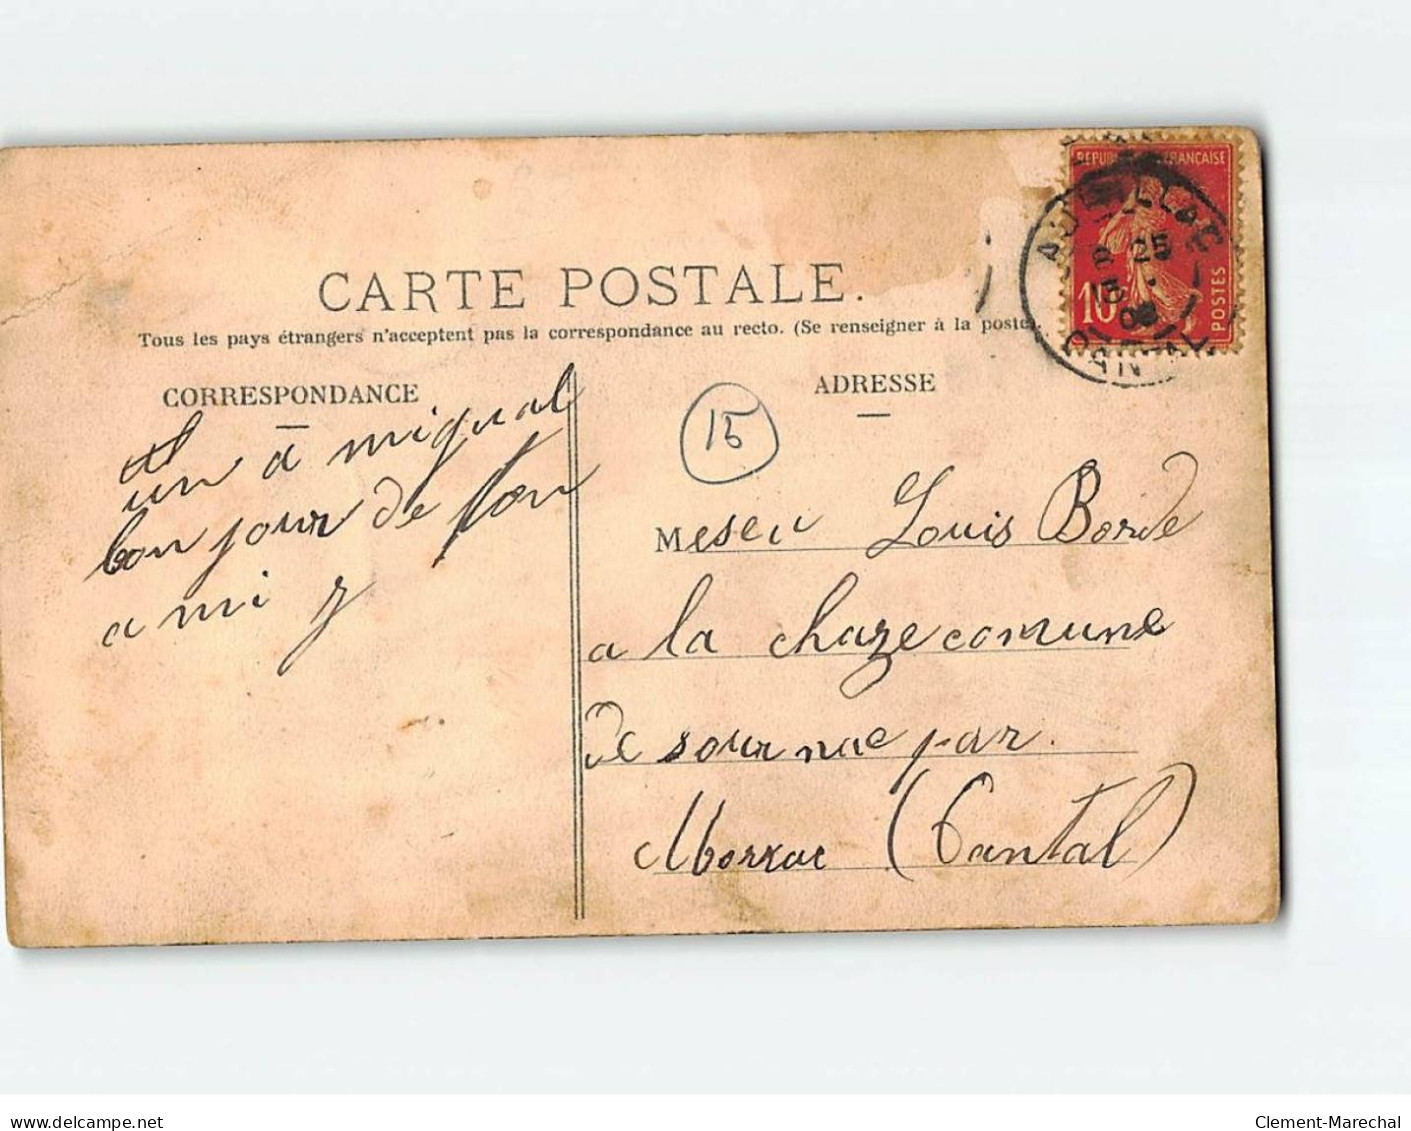 CARTE POSTALE.
Tous les pays étrangers n'acceptent pas la correspondance au recto. (Se renseigner à la poste)
CORRESPONDANCE
un a miqual
bon jour de son
a mi
ADRESSE
15
Meseu Louis Borde
a la chaze comune
de sournac par.
Morxac (Cantal)
REPUBLIQUE FRANCAISE
10
POSTES
AURILLAC
8 25
15
08
CANTAL
delcampe.net
Clement-Marechal